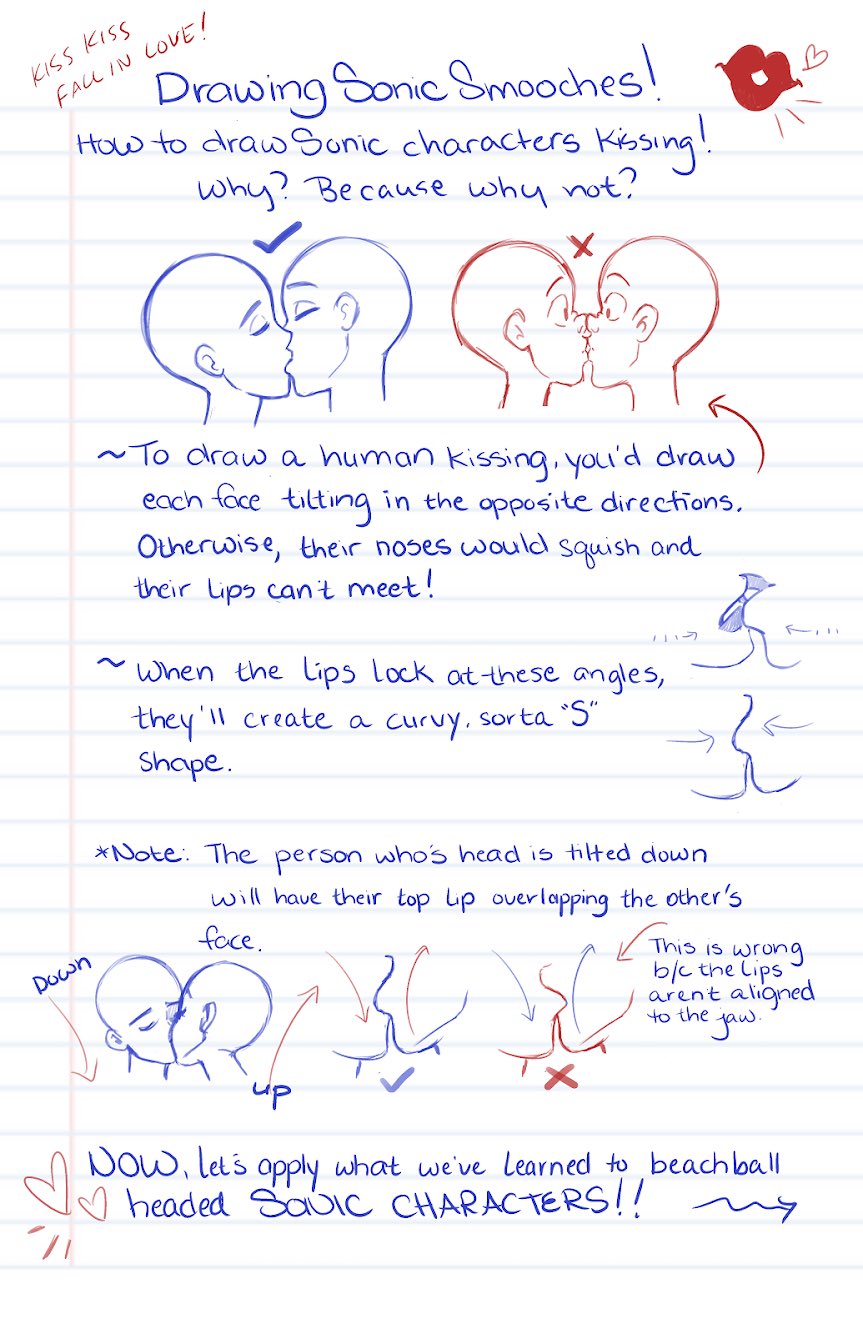 KISS KISS
FALL IN LOVE!
Drawing Sonic Smooches!
How to draw Sonic characters kissing!
Why? Because why not?
~To draw a human kissing, you'd draw
each face tilting in the opposite directions.
Otherwise, their noses would squish and
their lips can't meet!
~ When the lips lock at these angles,
they'll create a curvy, sorta "S"
shape.
*Note: The person who's head is tilted down
will have their top lip overlapping the other's
face.
Down
up
This is wrong
b/c the lips
aren't aligned
to the jaw.
NOW, let's apply what we've learned to beachball
headed SONIC CHARACTERS!!